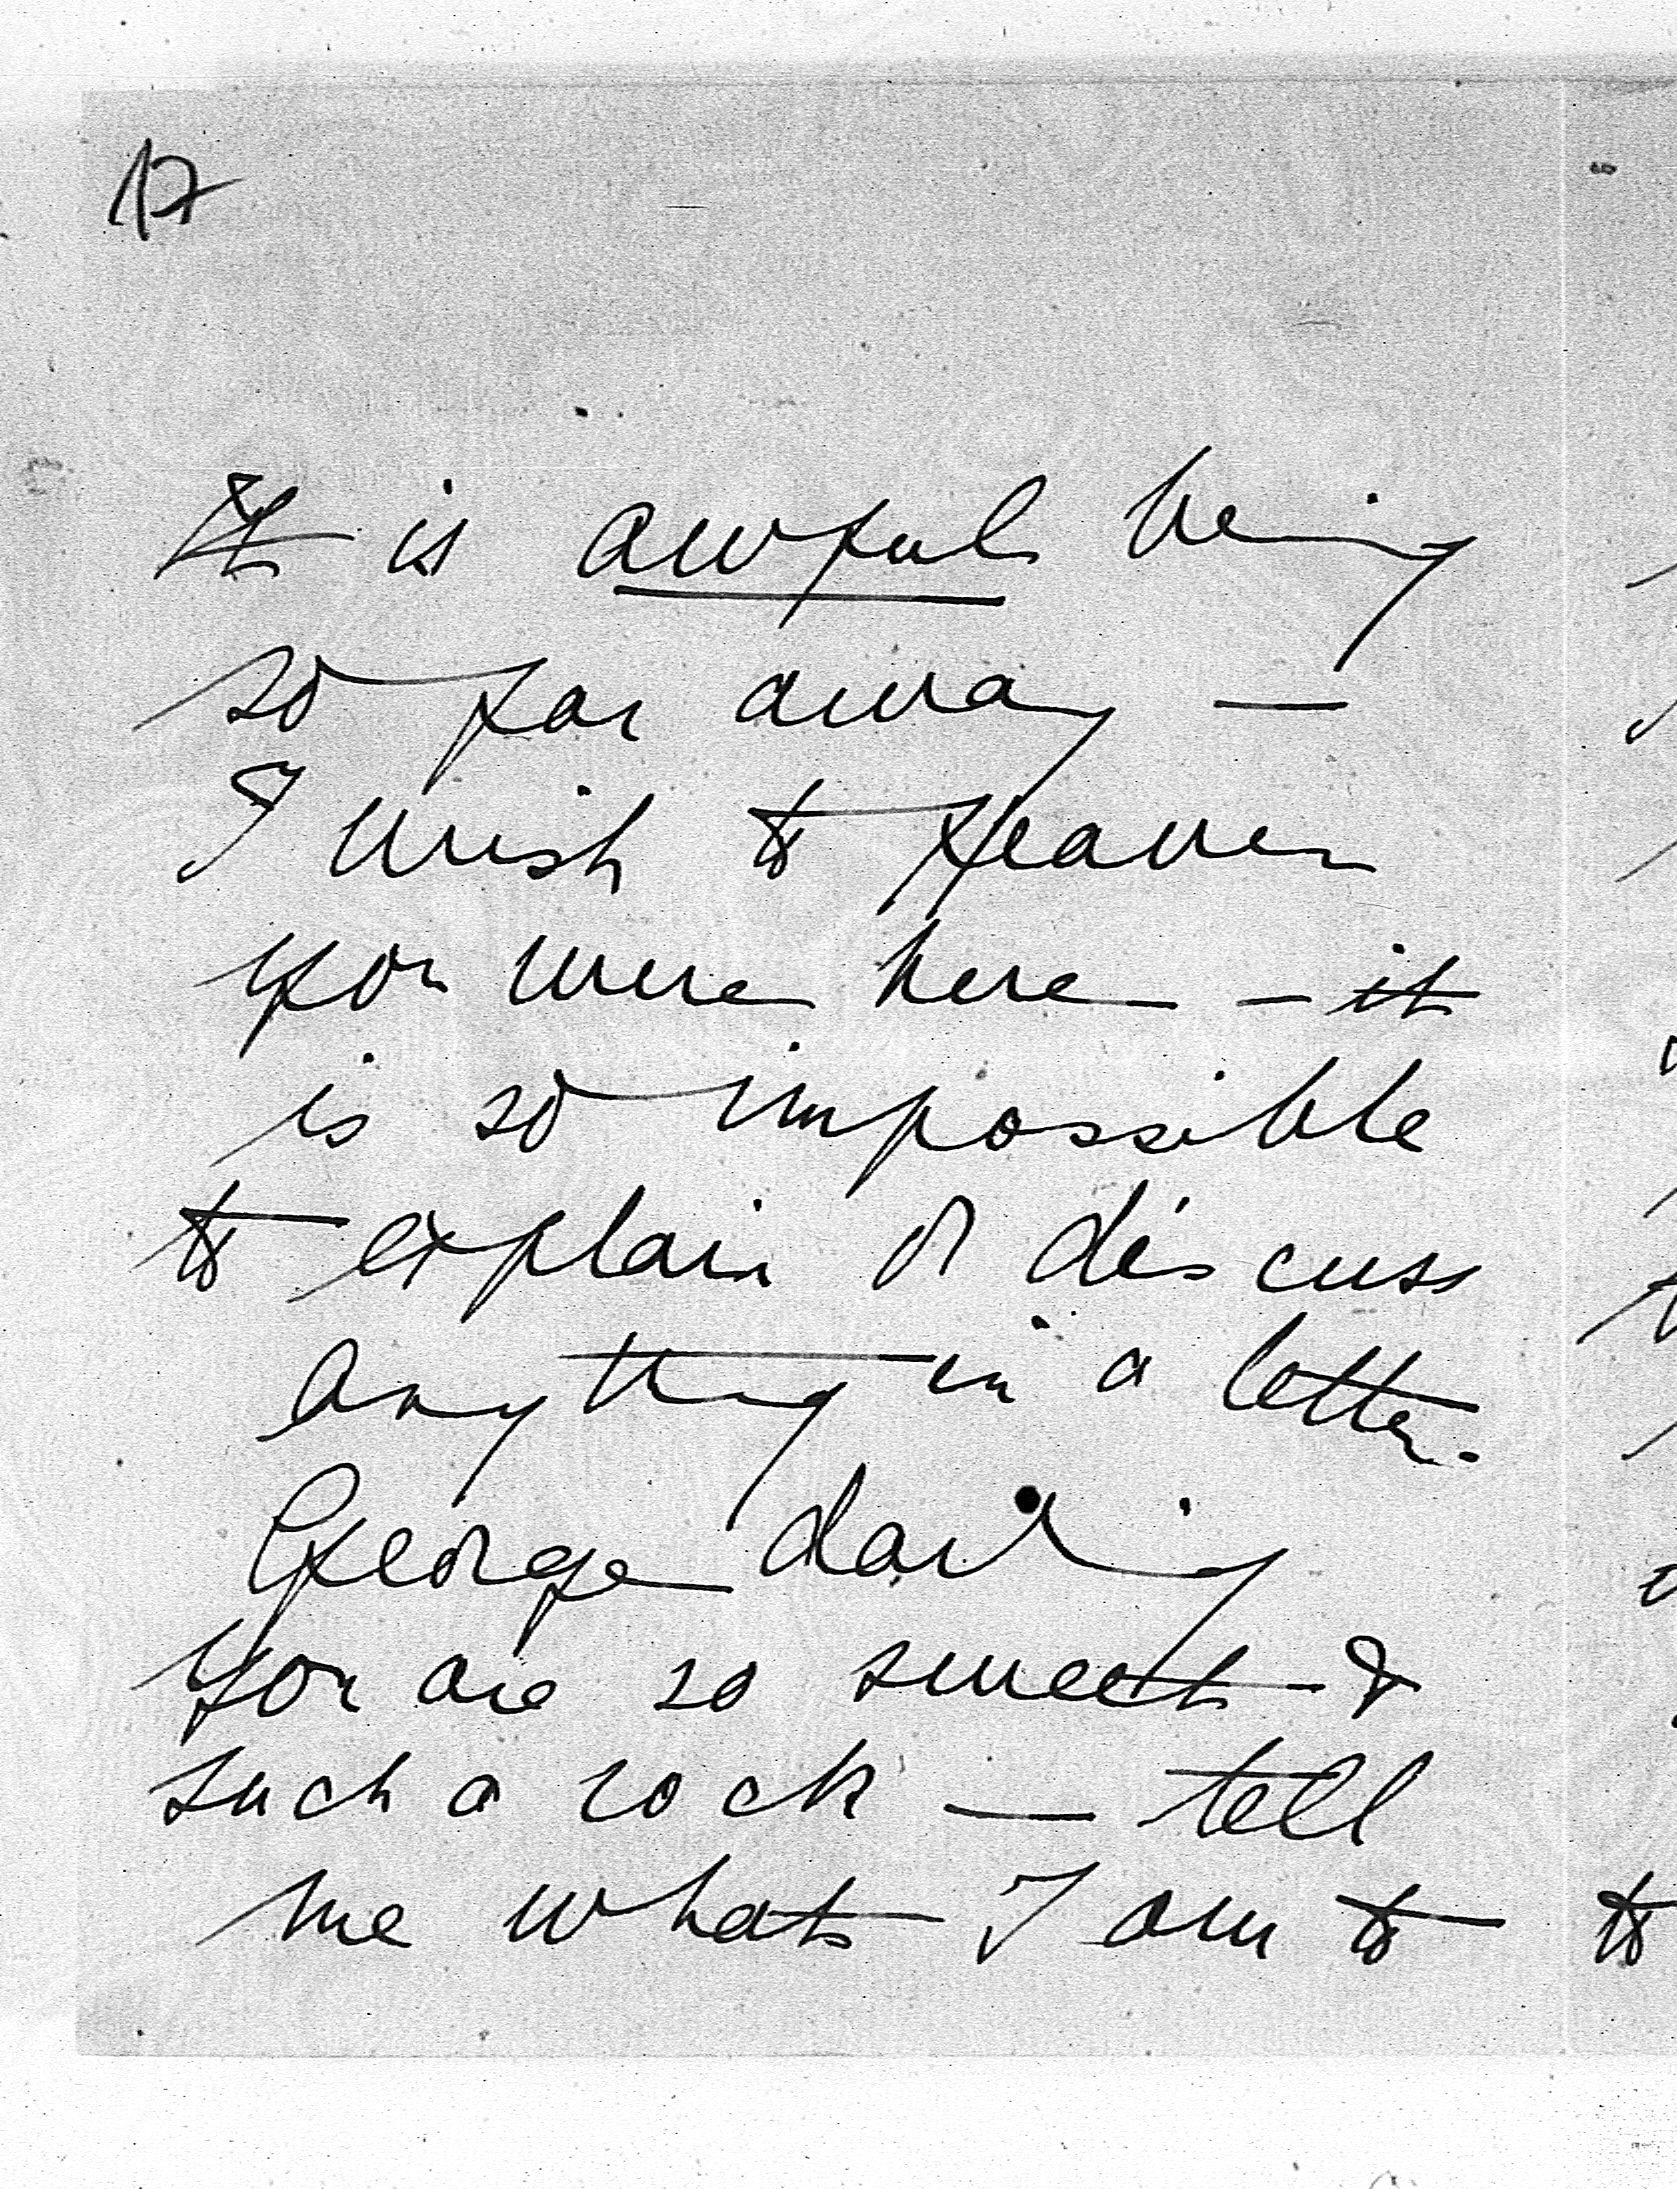 17
It is awful being
so far away —
I wish to Heaven
you were here – it
is so impossible
to explain or discuss
anything in a letter.
George darling
you are so sweet &
such a rock — tell
me what I am to
to